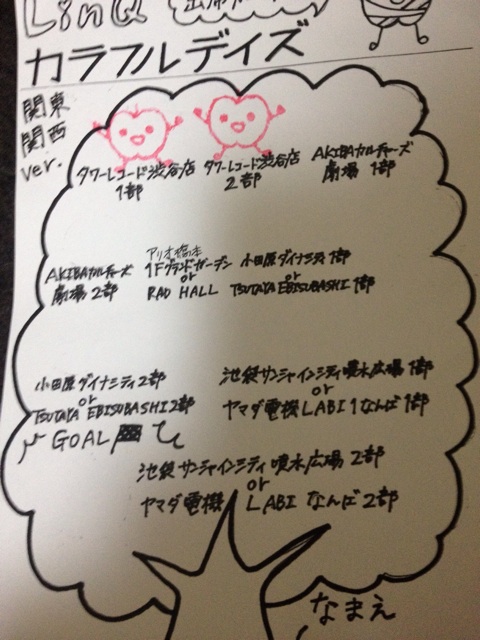 LinQ
カラフルデイズ
関東
関西
ver.
タワーレコード渋谷店
1部
タワーレコード渋谷店
2部
AKIBAカルチャーズ
劇場 1部
AKIBAカルチャーズ
劇場 2部
アリオ橋本
1Fグランドガーデン
or
RAD HALL
小田原ダイナシティ 1部
or
TSUTAYA EBISUBASHI 1部
小田原ダイナシティ 2部
or
TSUTAYA EBISUBASHI 2部
池袋サンシャインシティ噴水広場 1部
or
ヤマダ電機LABI1なんば 1部
GOAL
池袋サンシャインシティ噴水広場 2部
or
ヤマダ電機 LABI なんば 2部
なまえ